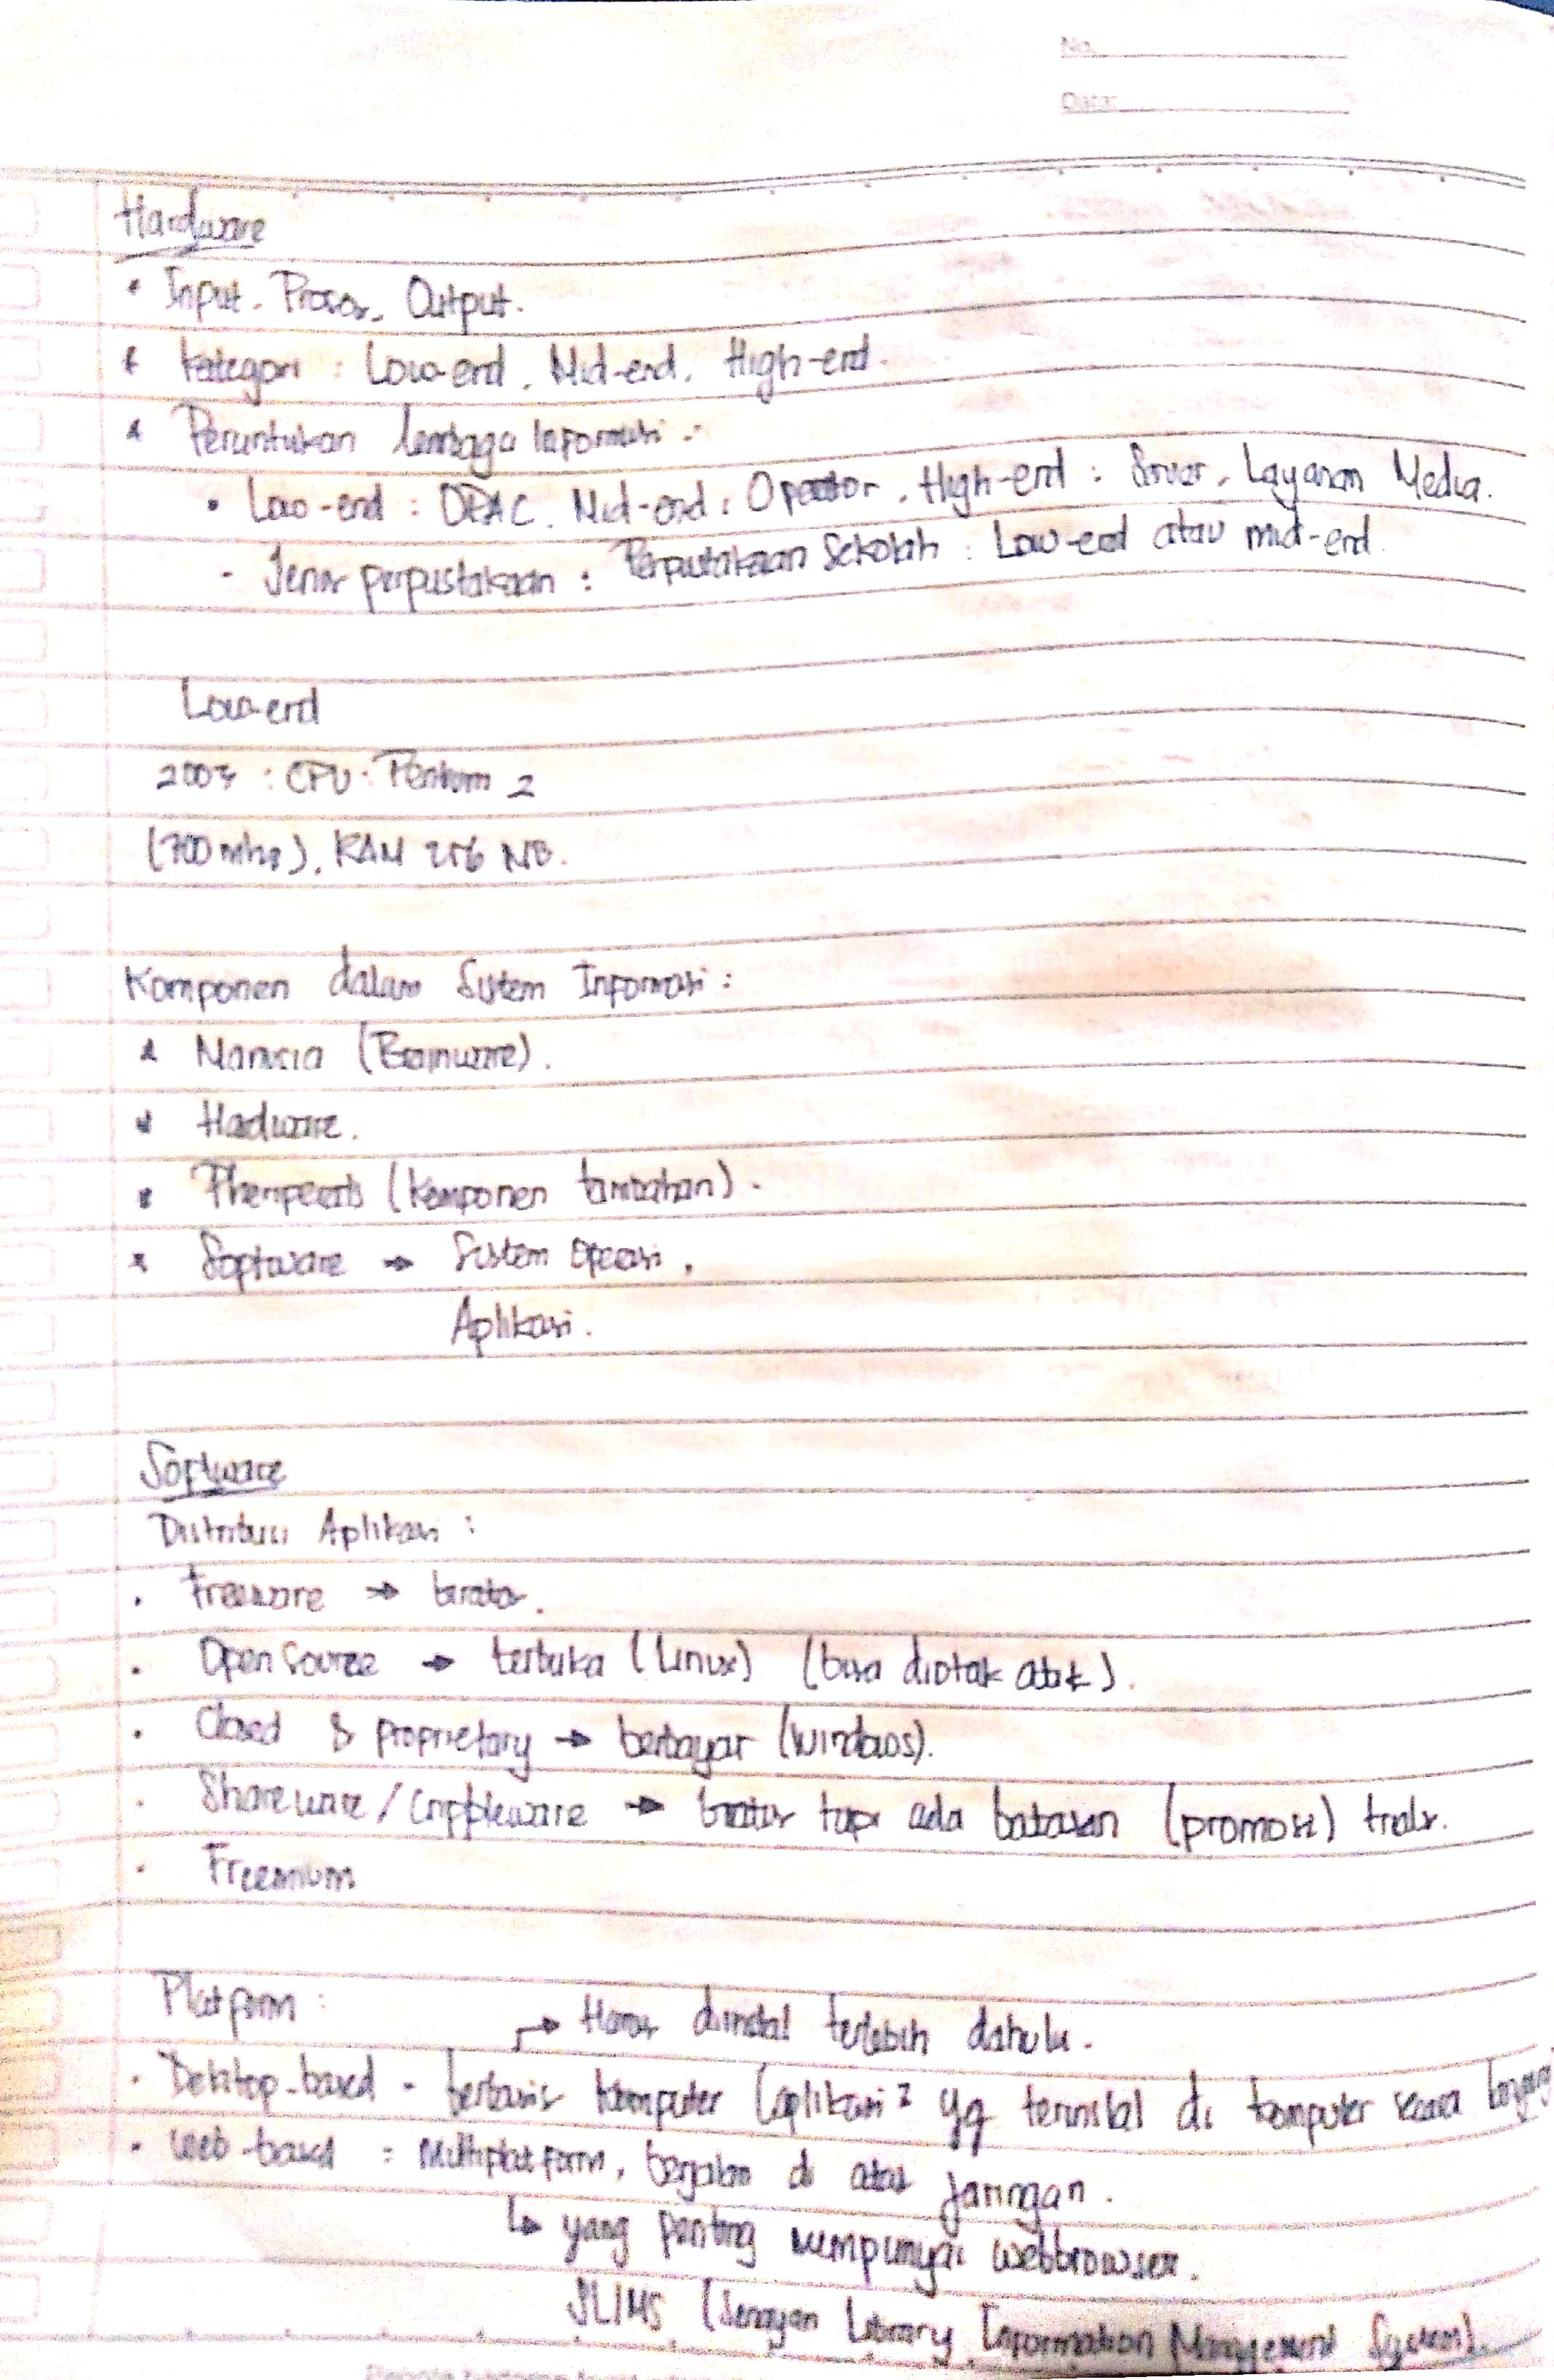 No.
Date:
Hardware
* Input. Proses. Output.
* Kategori : Low-end, Mid-end, High-end.
* Peruntukan lembaga Informasi :
• Low-end : OPAC. Mid-end : Operator. High-end : Server, Layanan Media.
- Jenis perpustakaan : Perpustakaan Sekolah : Low-end atau mid-end.
Low-end
2003 : CPU : Pentium 2
(700 mhz), RAM 256 MB.
Komponen dalam Sistem Informasi :
* Manusia (Brainware).
* Hardware.
* (Komponen tambahan).
* Software → Sistem Operasi,
Aplikasi.
Software
Distribusi Aplikasi :
• Freeware → gratis.
• Open Source → terbuka (Linux) (bisa diotak atik).
• Closed & proprietary → berbayar (windows).
• Shareware / Crippleware → gratis tapi ada batasan (promosi) trial.
• Freemium
Platform :
→ Harus diinstal terlebih dahulu.
• Desktop-based - berbasis komputer (aplikasi² yg terinstal di komputer secara
• Web-based : Multiplatform, berjalan di atas jaringan.
↳ yang penting mempunyai webbrowser.
SLIMS (Senayan Library Information Management System).